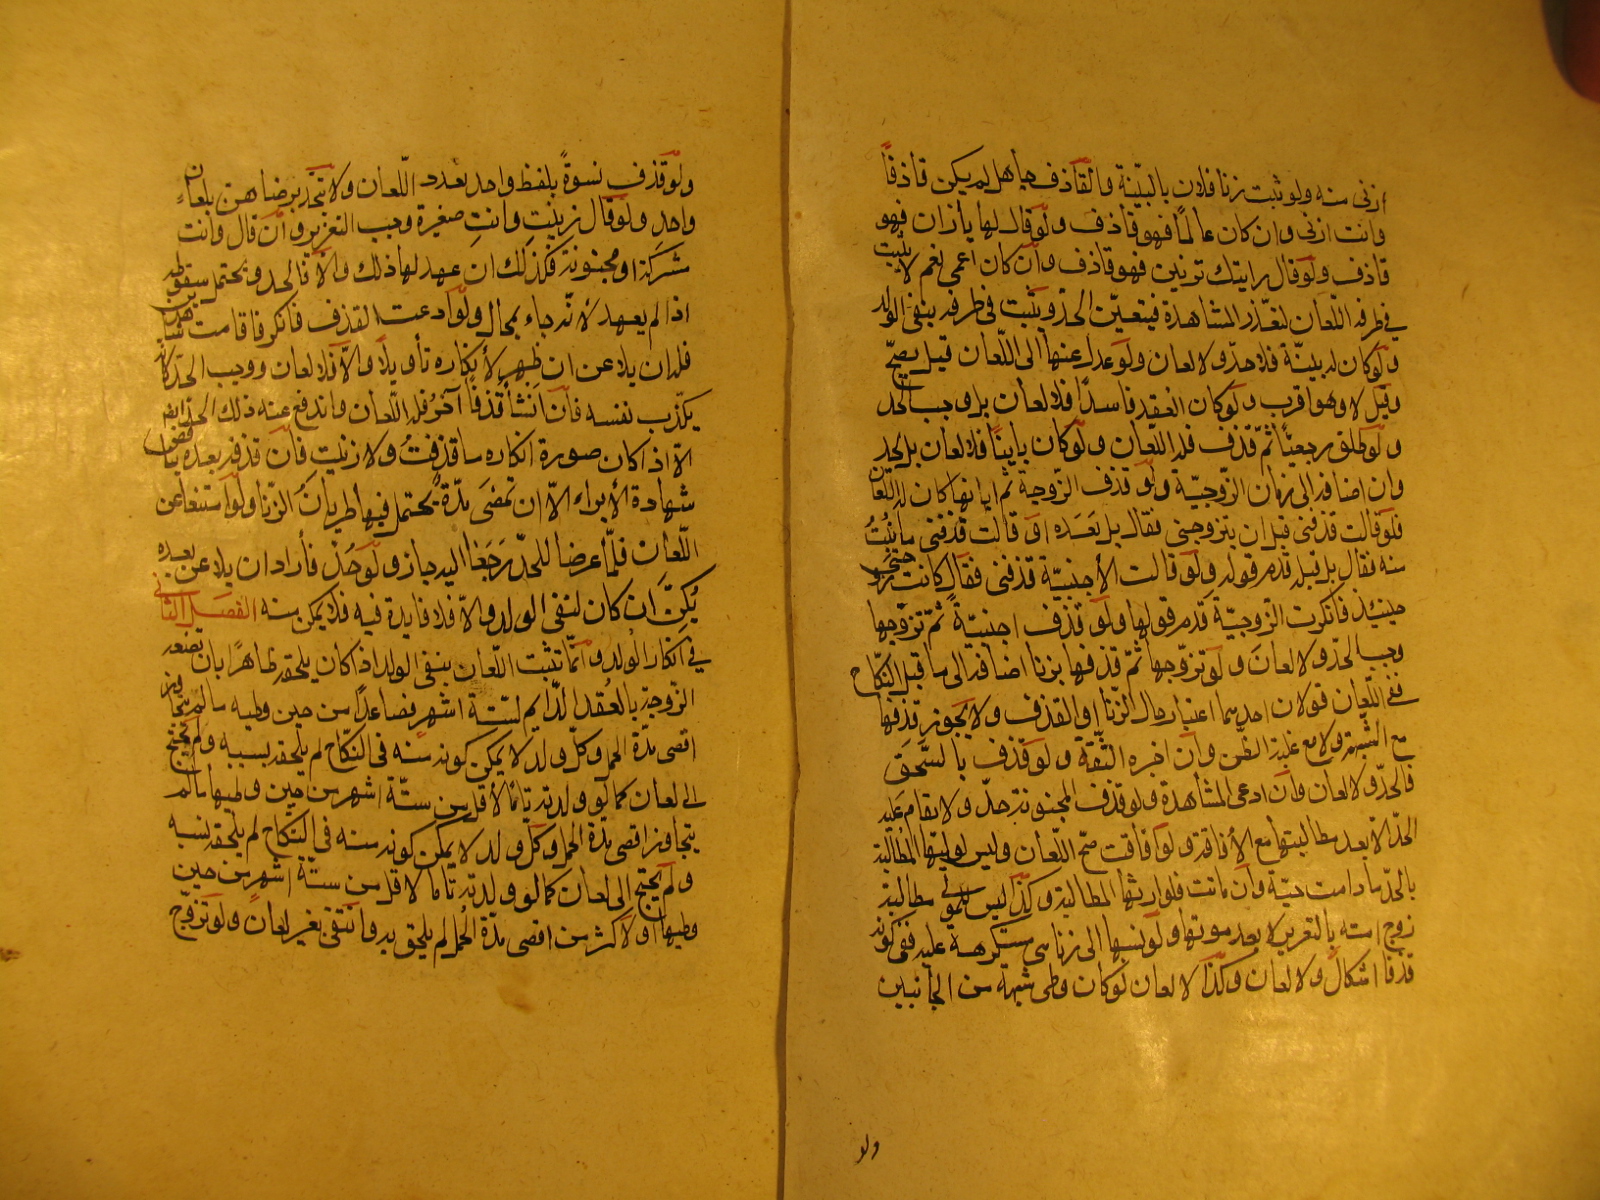 ازنى منه ولو ثبت زنا فلان بالبيّنة والقاذف جاهل لم يكن قاذفًا
وانت ازنى وان كان عالمًا فهو قاذف ولو قال لها يا زان فهو
قاذف ولو قال رايتك تزنين فهو قاذف وان كان اعمى نعم لا يثبت
في طرفه اللّعان لتعذّر المشاهدة فيتعيّن الحدّ ويثبت في طرفه بنفى الولد
ولو كان له بيّنة فلا حدّ ولا لعان ولو عدل عنها الى اللّعان قيل يصحّ
وقيل لا وهو اقرب ولو كان العقد فاسدًا فلا لعان بل وجب الحدّ
ولو طلق رجعيًّا ثمّ قذف فله اللّعان ولو كان باينًا فلا لعان بل يحد
وان اضافه الى زمان الزّوجيّة ولو قذف الزّوجة ثم ابانها كان له اللّعان
فلو قالت قذفنى قبل ان يتزوجنى فقال بل بعده او قالت قذفنى ما بنت
منه فقال بل قبله قدم قوله ولو قالت الأجنبيّة قذفنى فقال كانت زوجتى
حينئذ فانكرت الزّوجيّة قدم قولها ولو قذف اجنبيّة ثمّ تزوّجها
وجب الحدّ ولا لعان ولو تزوّجها ثمّ قذفها بزنا اضافه الى ما قبل النكاح
ففى اللّعان قولان احدهما اعتبار حال الزّنا او القذف ولا يجوز قذفها
مع الشبهة ولا مع غلبة الظّن وان اخبره الثّقة ولو قذف بالسّحق
فالحدّ ولا لعان وان ادعى المشاهدة ولو قذف المجنونة حدّ ولا يقام عليه
الحدّ الّا بعد مطالبتها مع الأفاقة ولو فاقت صحّ اللّعان وليس لوليّها المطالبة
بالحدّ ما دامت حيّة وان ماتت فلوارثها المطالبة وكذا ليس للمولى مطالبة
زوج امته بالتعزير الا بعد موتها ولو نسبها الى زنا هى مستكرهة عليه ففى كونه
قذفًا اشكال ولا لعان وكذا لا لعان لو كان وطى شبهة من الجانبين
ولو
ولو قذف نسوةً بلفظ واحد تعدد اللّعان ولا يتّحد برضاهن بلعان
واحد ولو قال زنيت وانتِ صغيرة وجب التعزير وان قال وانت
مشركة او مجنونة فكذلك ان عهد لها ذلك والّا فالحد ويحتمل سقوطه
اذا لم يعهد لأنّه جاء بمحال ولو ادعت القذف فانكر فاقامت شاهدين
فله ان يلاعن ان ظهر لأنكاره تأويلًا والّا فلا لعان ووجب الحدّ لانه
يكذّب نفسه فان انشأ قذفًا آخر فله اللّعان واندفع عنه ذلك الحدّ ايضا
الّا اذا كان صورة انكاره ما قذفتُ ولا زنيت فان قذفه بعده يناقض
شهادة الأبراء الّا ان تمضى مدّة يحتمل فيها طريانُ الزّنا ولو امتنعا عن
اللّعان فلمّا عرضا للحدّ رجعا اليه جاز ولو حدّ فأراد ان يلاعن بعده
يُمكّن ان كان لنفى الولد والّا فلا فايدة فيه فلا يمكن منه الفصل الثانى
في انكار الولد وانّما تثبت اللّعان بنفى الولد اذا كان يلحقه ظاهرًا بان تضعه
الزّوجة بالعقد الدّايم لستّة اشهر فصاعدًا من حين وطيه ما لم يتجاوز
اقصى مدّة الحمل وكلّ ولد لا يمكن كونه منه في النّكاح لم يلحقه بسببه ولم يحتج
الى لعان كما لو ولدته تامًّا لأقل من ستّة اشهر من حين وطيها ما لم
يتجاوز اقصى مدّة الحمل وكلّ ولد لا يمكن كونه منه في النّكاح لم يلحقه نسبه
ولم يحتج الى لعان كما لو ولدته تاما لا قل من ستّة اشهر من حين
وطيها او لاكثر من اقصى مدّة الحمل لم يلحق به وانتفى بغير لعان ولو تزوّج